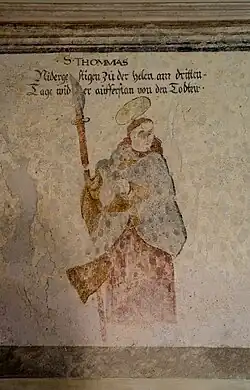 · S · THOMMAS
Niderge stigen zu der helen am dritten-
Tage wid er aufferstan von den Todten ·